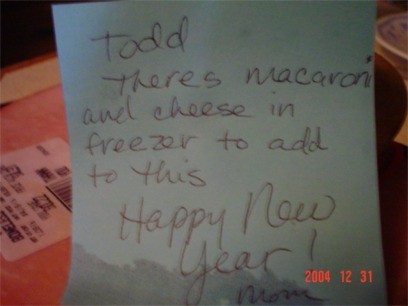 Todd
Theres macaroni
and cheese in
freezer to add
to this
Happy New
Year!
Mom
2004 12 31